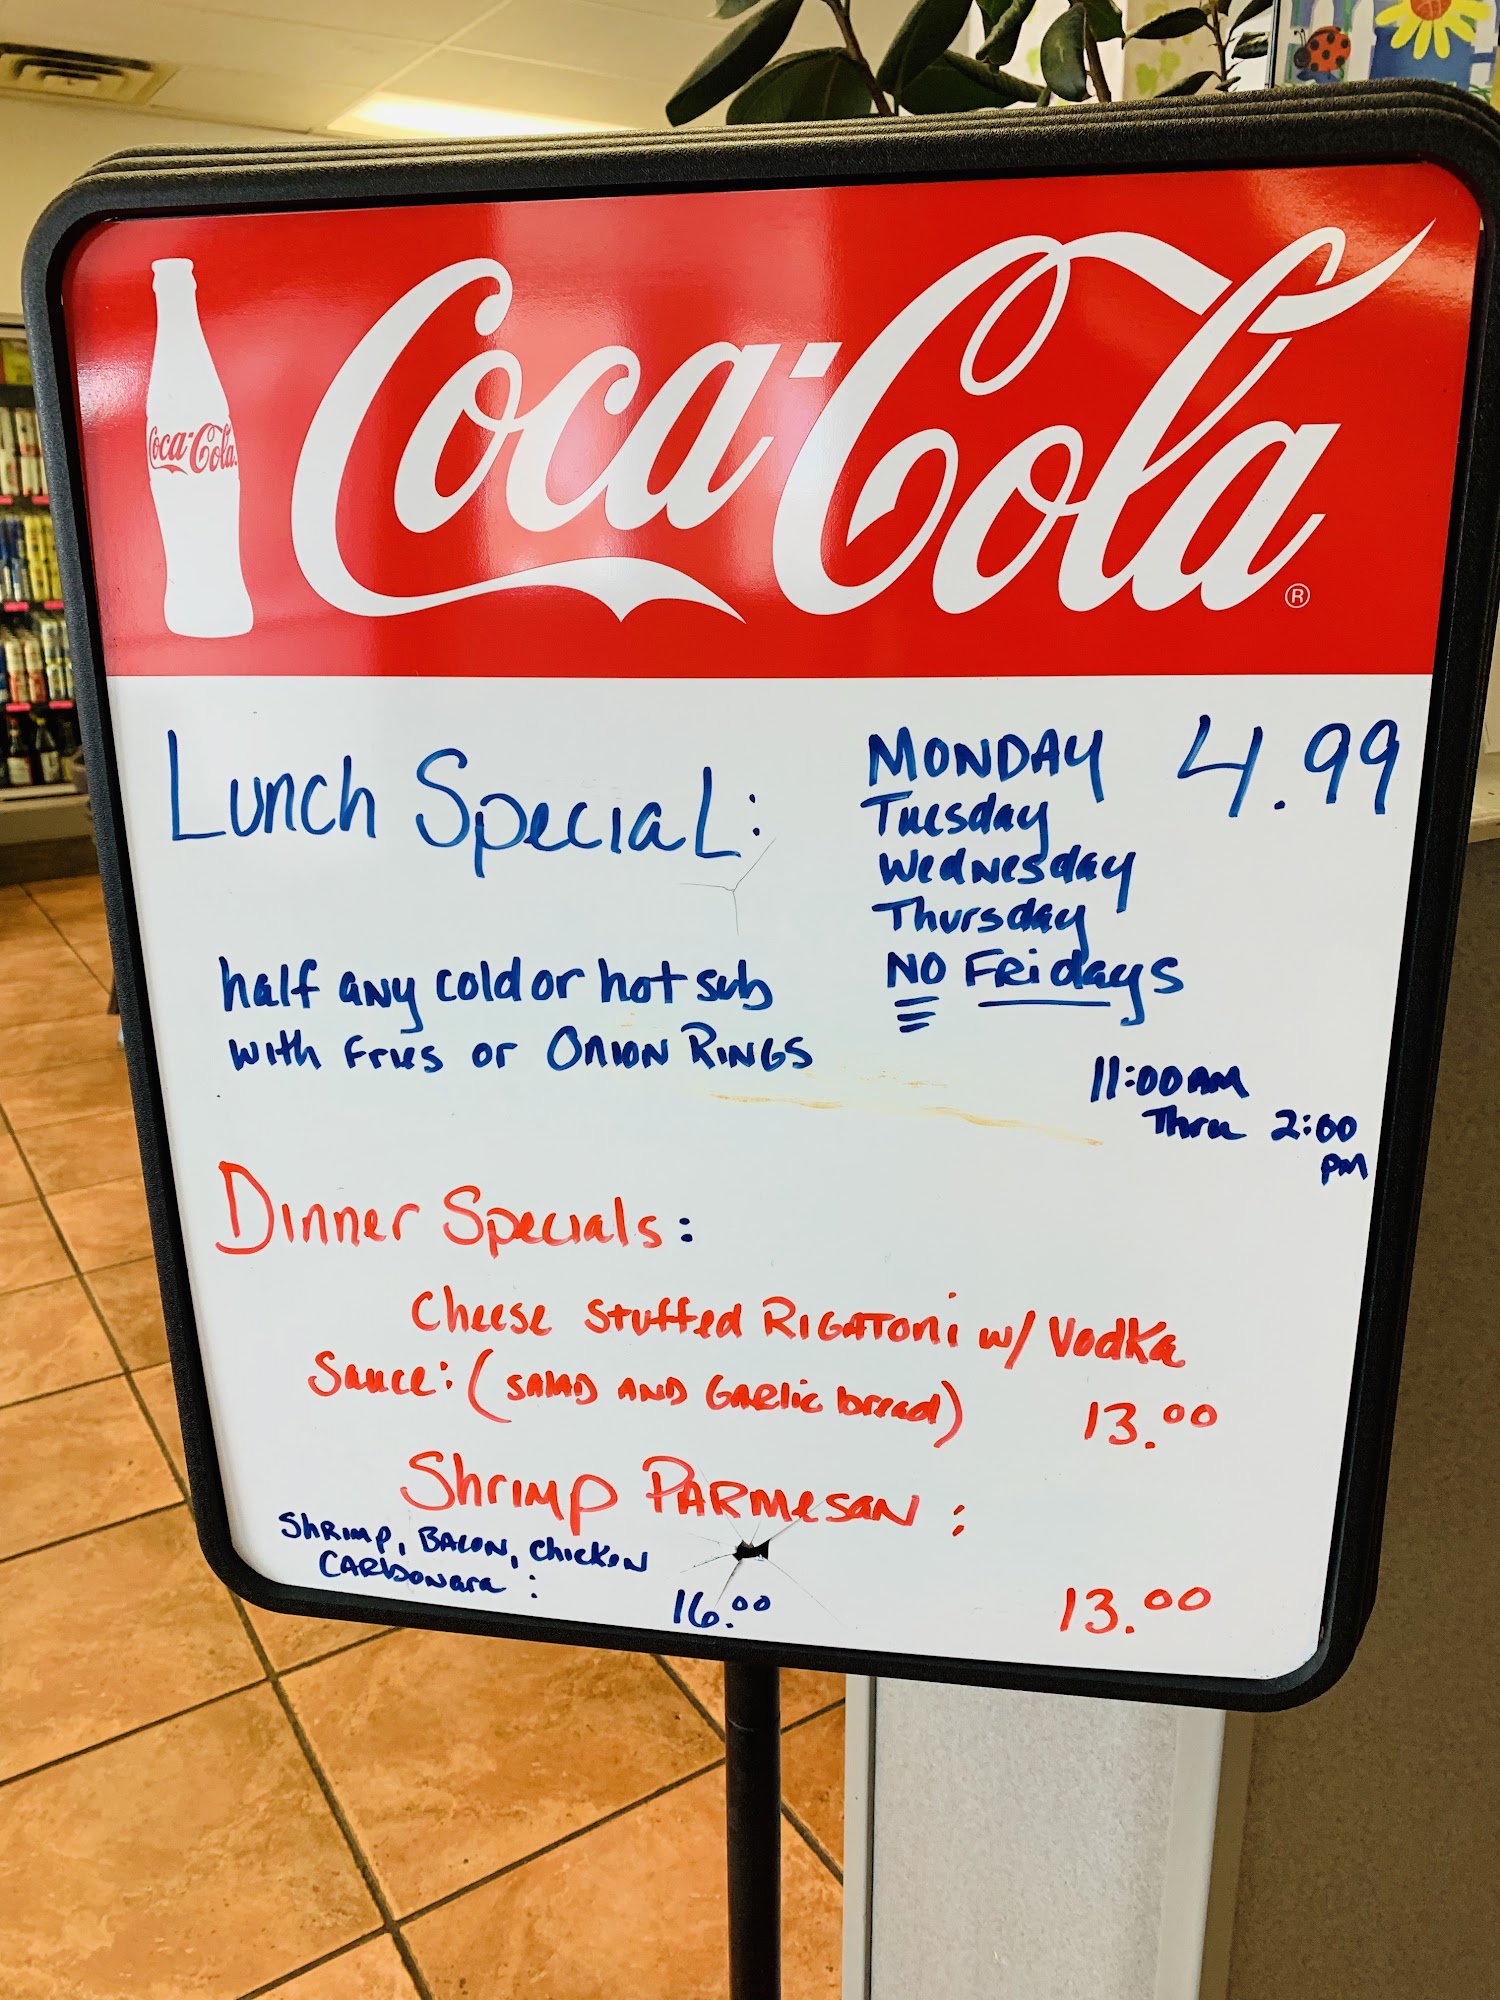 Coca-Cola
Coca-Cola ®
Lunch Special:
MONDAY 4.99
Tuesday
Wednesday
Thursday
NO FRidays
half any cold or hot sub
with fries or ONION RINGS
11:00 AM
Thru 2:00
PM
Dinner Specials:
Cheese Stuffed RIGATONi w/ Vodka
Sauce: (SALAD AND GARlic bread) 13.00
Shrimp PARMesaN:
13.00
ShRimp, BACON, Chicken
CARbonara: 16.00